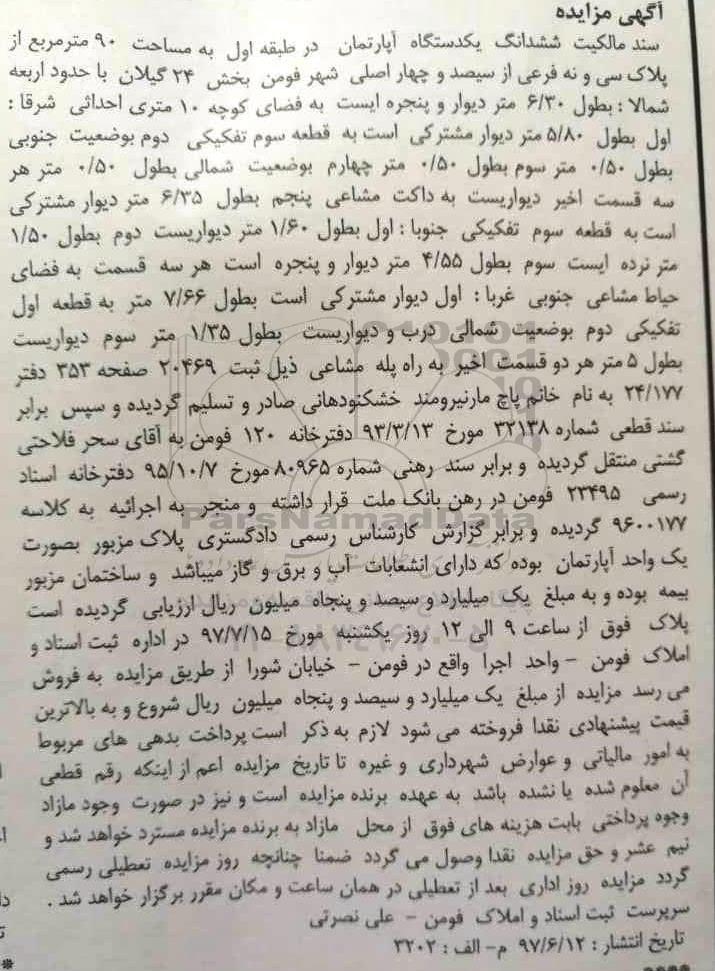 آگهی مزایده
سند مالکیت ششدانگ یکدستگاه آپارتمان در طبقه اول به مساحت ۹۰ مترمربع از
پلاک سی و نه فرعی از سیصد و چهار اصلی شهر فومن بخش ۲۴ گیلان با حدود اربعه
شمالا : بطول ۶/۳۰ متر دیوار و پنجره ایست به فضای کوچه ۱۰ متری احداثی شرقا :
اول بطول ۵/۸۰ متر دیوار مشترکی است به قطعه سوم تفکیکی دوم بوضعیت جنوبی
بطول ۰/۵۰ متر سوم بطول ۰/۵۰ متر چهارم بوضعیت شمالی بطول ۰/۵۰ متر هر
سه قسمت اخیر دیواریست به داکت مشاعی پنجم بطول ۶/۳۵ متر دیوار مشترکی
است به قطعه سوم تفکیکی جنوبا : اول بطول ۱/۶۰ متر دیواریست دوم بطول ۱/۵۰
متر نرده ایست سوم بطول ۴/۵۵ متر دیوار و پنجره است هر سه قسمت به فضای
حیاط مشاعی جنوبی غربا : اول دیوار مشترکی است بطول ۷/۶۶ متر به قطعه اول
تفکیکی دوم بوضعیت شمالی درب و دیواریست بطول ۱/۳۵ متر سوم دیواریست
بطول ۵ متر هر دو قسمت اخیر به راه پله مشاعی ذیل ثبت ۲۰۴۶۹ صفحه ۳۵۳ دفتر
۲۴/۱۷۷ به نام خانم پاچ مارنیرومند خشکنودهانی صادر و تسلیم گردیده و سپس برابر
سند قطعی شماره ۳۲۱۳۸ مورخ ۹۳/۳/۱۳ دفترخانه ۱۲۰ فومن به آقای سحر فلاحتی
گشتی منتقل گردیده و برابر سند رهنی شماره ۸۰۹۶۵ مورخ ۹۵/۱۰/۷ دفترخانه اسناد
رسمی ۲۳۴۹۵ فومن در رهن بانک ملت قرار داشته و منجر به اجرائیه به کلاسه
۹۶۰۰۱۷۷ گردیده و برابر گزارش کارشناس رسمی دادگستری پلاک مزبور بصورت
یک واحد آپارتمان بوده که دارای انشعابات آب و برق و گاز میباشد و ساختمان مزبور
بیمه بوده و به مبلغ یک میلیارد و سیصد و پنجاه میلیون ریال ارزیابی گردیده است
پلاک فوق از ساعت ۹ الی ۱۲ روز یکشنبه مورخ ۹۷/۷/۱۵ در اداره ثبت اسناد و
املاک فومن - واحد اجرا واقع در فومن - خیابان شورا از طریق مزایده به فروش
می رسد مزایده از مبلغ یک میلیارد و سیصد و پنجاه میلیون ریال شروع و به بالاترین
قیمت پیشنهادی نقدا فروخته می شود لازم به ذکر است پرداخت بدهی های مربوط
به امور مالیاتی و عوارض شهرداری و غیره تا تاریخ مزایده اعم از اینکه رقم قطعی
آن معلوم شده یا نشده باشد به عهده برنده مزایده است و نیز در صورت وجود مازاد
وجوه پرداختی بابت هزینه های فوق از محل مازاد به برنده مزایده مسترد خواهد شد و
نیم عشر و حق مزایده نقدا وصول می گردد ضمنا چنانچه روز مزایده تعطیلی رسمی
گردد مزایده روز اداری بعد از تعطیلی در همان ساعت و مکان مقرر برگزار خواهد شد .
سرپرست ثبت اسناد و املاک فومن - علی نصرتی
تاریخ انتشار : ۹۷/۶/۱۲ م- الف : ۳۲۰۲
ParsNamadData